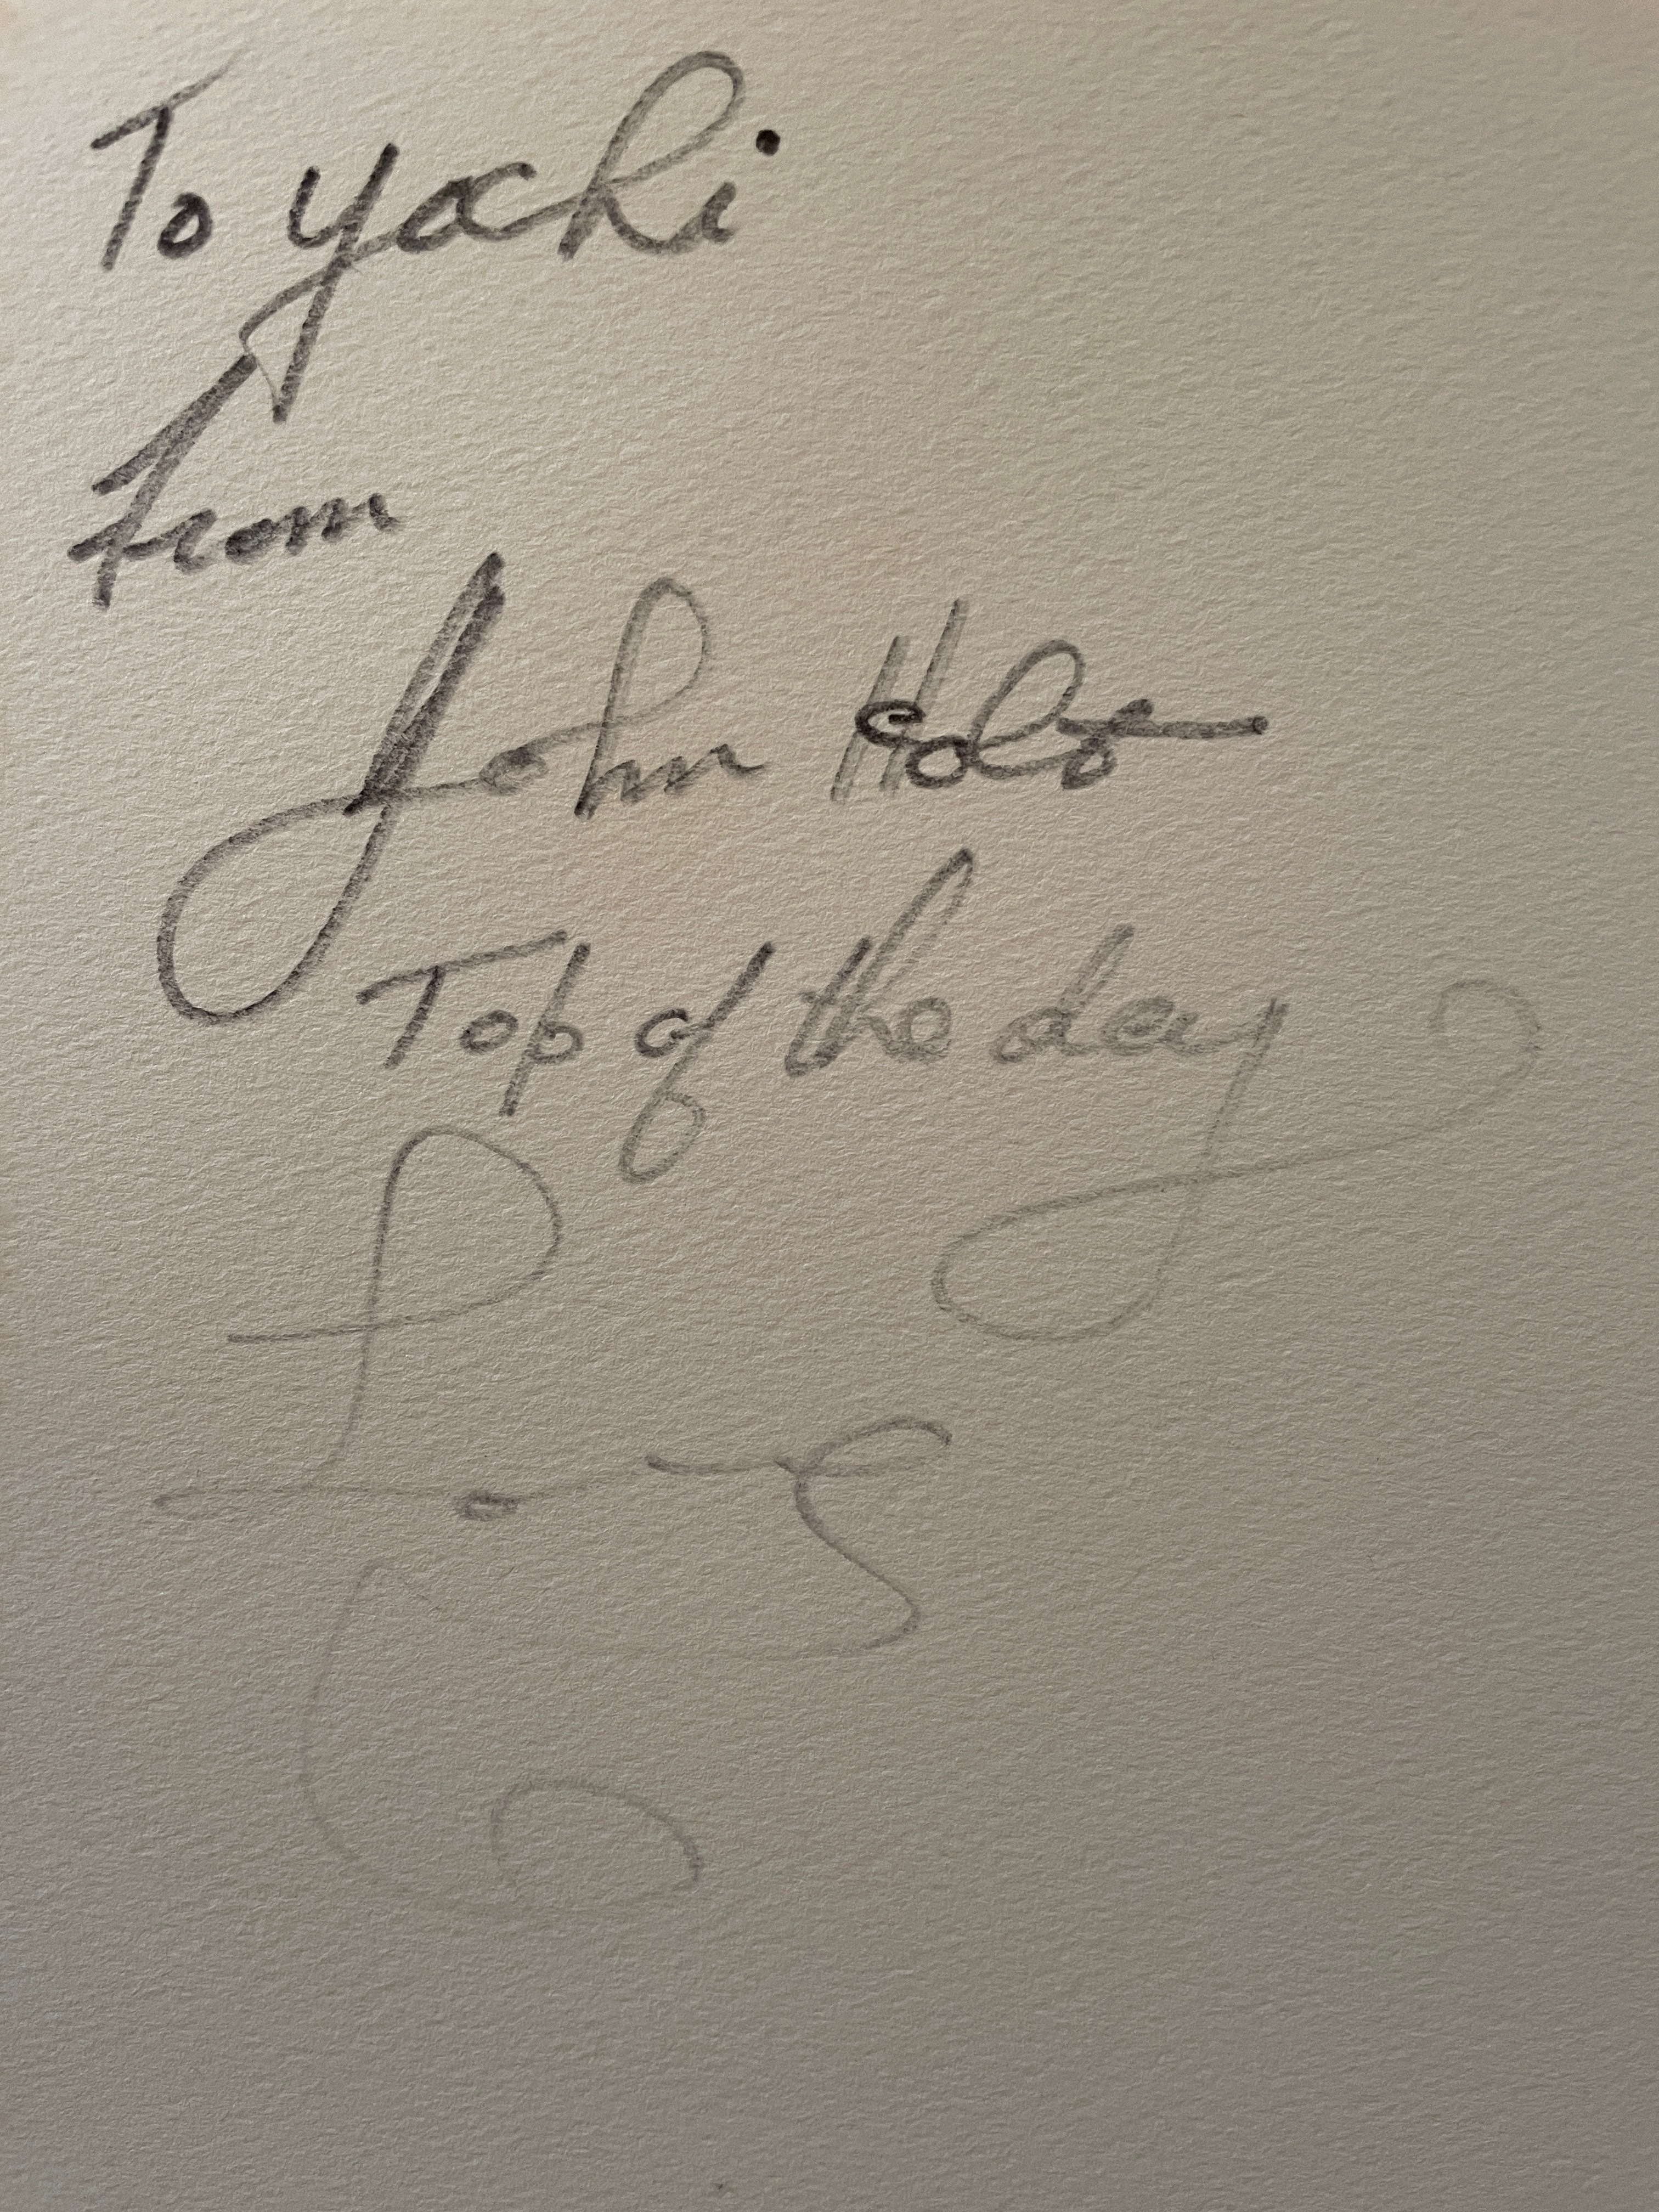 To Yachi
from
John Holt
Top of the day